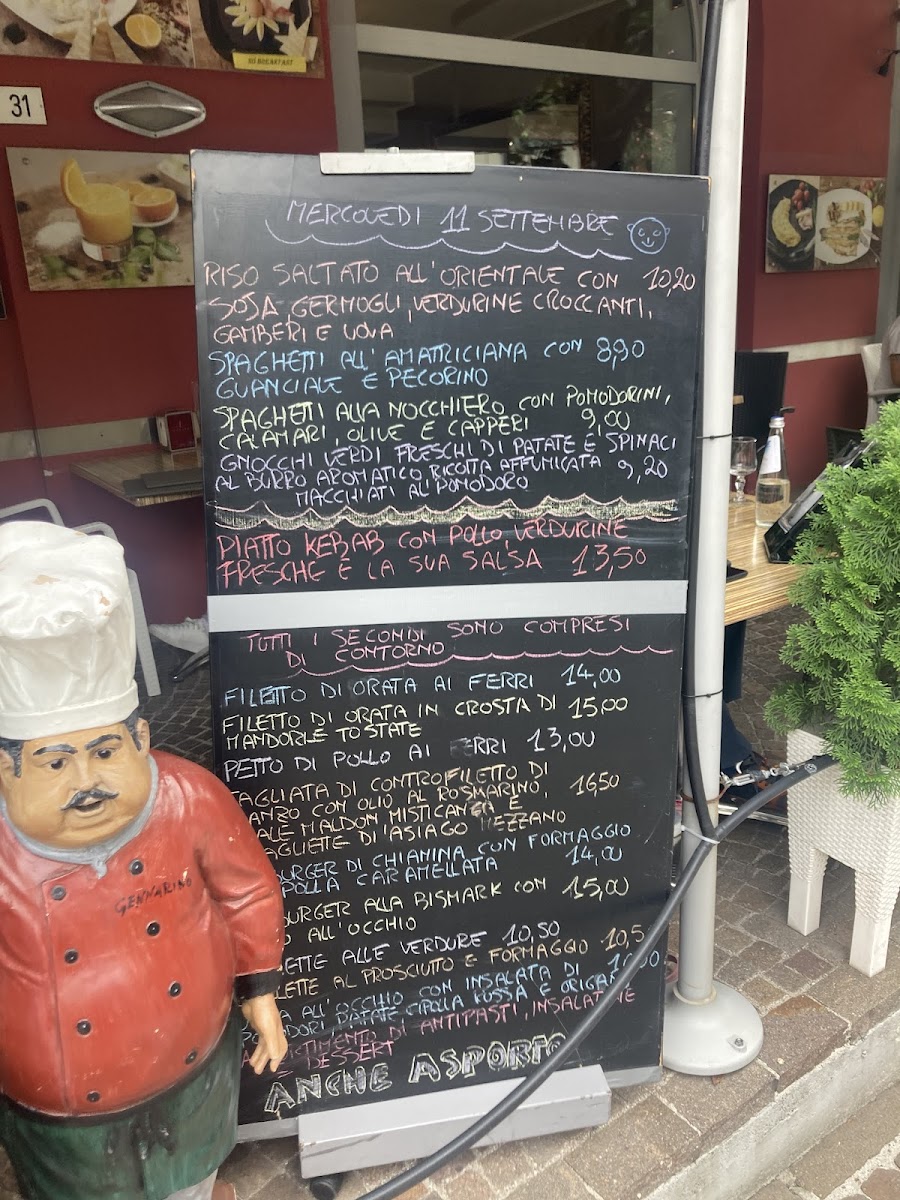 GO BREAKFAST
31
MERCOLEDI 11 SETTEMBRE
RISO SALTATO ALL'ORIENTALE CON 10,20
SOJA GERMOGLI, VERDURINE CROCCANTI,
GAMBERI E UOVA
SPAGHETTI ALL'AMATRICIANA CON 8,90
GUANCIALE E PECORINO
SPAGHETTI ALLA NOCCHIERO CON POMODORINI,
CALAMARI, OLIVE E CAPPERI 9,00
GNOCCHI VERDI FRESCHI DI PATATE E SPINACI
AL BURRO AROMATICO RICOTTA AFFUMICATA 9,20
MACCHIATI AL POMODORO
PIATTO KEBAB CON POLLO VERDURINE
FRESCHE E LA SUA SALSA 13,50
TUTTI I SECONDI SONO COMPRESI
DI CONTORNO
FILETTO DI ORATA AI FERRI 14,00
FILETTO DI ORATA IN CROSTA DI 15,00
MANDORLE TOSTATE
PETTO DI POLLO AI FERRI 13,00
TAGLIATA DI CONTROFILETTO DI
ANZO CON OLIO AL ROSMARINO, 16,50
ALE MALDON MISTICANZA E
AGLIETE DI ASIAGO MEZZANO
BURGER DI CHIANINA CON FORMAGGIO
POLLA CARAMELLATA 14,00
BURGER ALLA BISMARK CON 15,00
O ALL'OCCHIO
ETTE ALLE VERDURE 10,50
LETTE AL PROSCIUTO E FORMAGGIO 10,5
A ALL'OCCHIO CON INSALATA DI
DORI, PATATE CIPOLLA ROSSA E ORIGA
TIMENTO DI ANTIPASTI, INSALATINE
DESSERT
ANCHE ASPORTO
GENNARINO